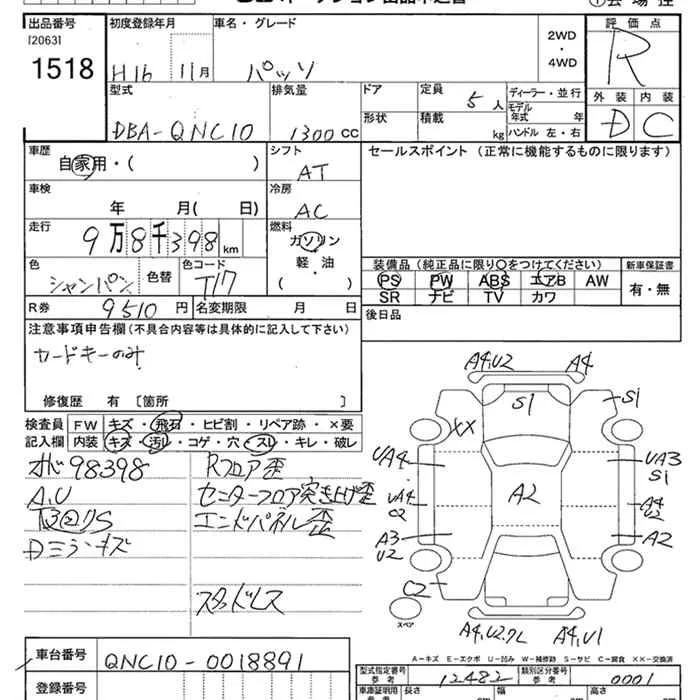 出品番号
[2063]
1518
初度登録年月
H16 11月
車名・グレード
パッソ
2WD
・
4WD
評価点
R
型式
DBA-QNC10
排気量
1300 CC
ドア
形状
定員
5人
積載
kg
ディーラー・並行
モデル
年式 年
ハンドル 左・右
外装 内装
D C
車歴
自家用・( )
シフト
AT
セールスポイント (正常に機能するものに限ります)
車検
年 月( 日)
冷房
AC
走行
9万8千398km
燃料
ガソリン
軽・油
( )
色
シャンパン
色替
色コード
T17
装備品(純正品に限り○をつけてください)
PS PW ABS エアB AW
SR ナビ TV カワ
新車保証書
有・無
R券
9510円
名変期限 月 日
後日品
注意事項申告欄(不具合内容等は具体的に記入して下さい)
カードキーのみ
修復歴 有 [箇所 ]
検査員
記入欄
FW キズ・飛石・ヒビ割・リペア跡・×要
内装 キズ・汚れ・コゲ・穴・スレ・キレ・破レ
オド98398
A,U
Dミラーキズ
Rフロア歪
センターフロア突き上げ歪
エンドパネル歪
スタッドレス
A4,U2 A4
S1
S1
XX
UA4
UA3
S1
UA4
C2
A2
A4
U2
A3
U2
A2
C2
スペア
A4,U2,クレ A4,U1
A-キズ E-エクボ U-凹み W-補修跡 S-サビ C-腐食 XX-交換済
車台番号
QNC10-0018891
登録番号
型式指定番号
参考
12482
類別区分番号
参考
0001
車庫証明用
参考
長さ
幅
高さ